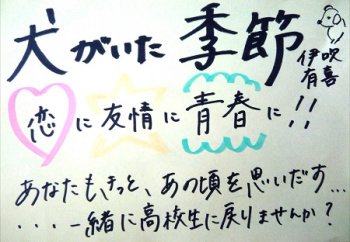 犬がいた季節
伊吹有喜
恋に友情に青春に!!
あなたも、きっと、あの頃を思いだす...
・・・・一緒に高校生に戻りませんか?